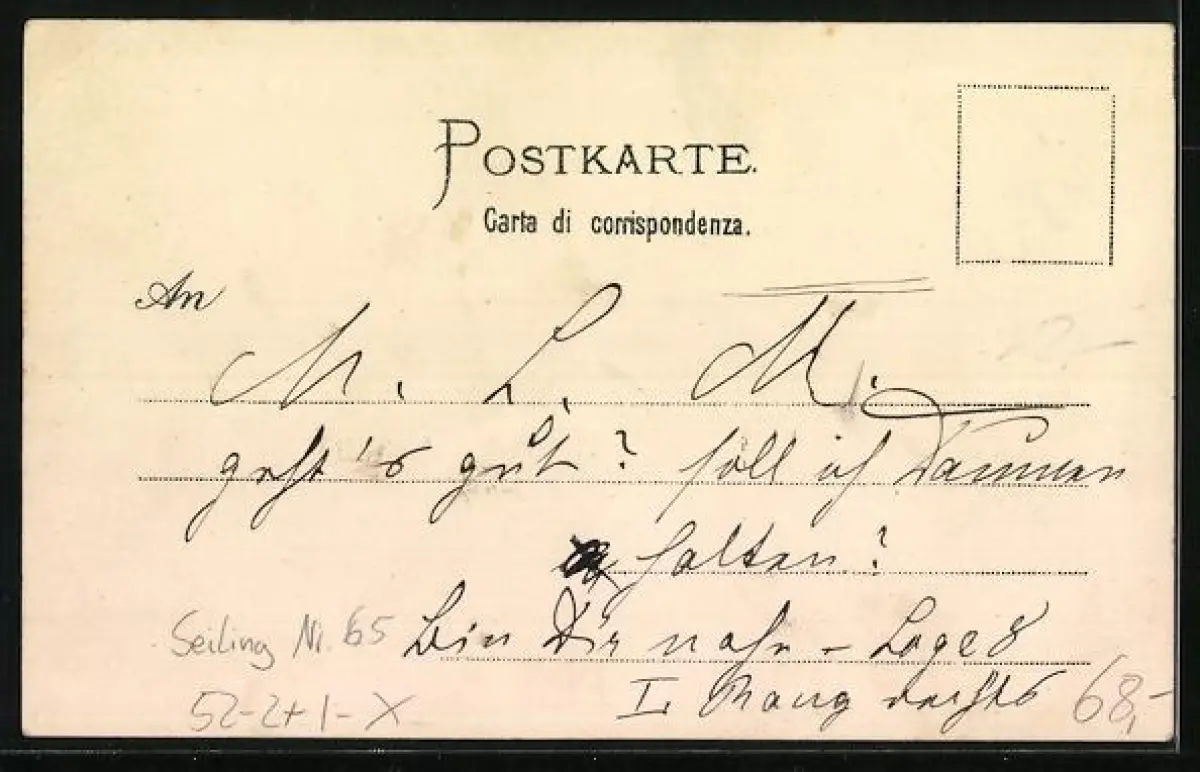 POSTKARTE.
Carta di corrispondenza.
An
M. L. M.
geht's gut? soll ich Daumen
halten?
Bin Dir nahe – Loge 8
I. Rang rechts
Seiling Nr. 65
52-2+1-X
68,-